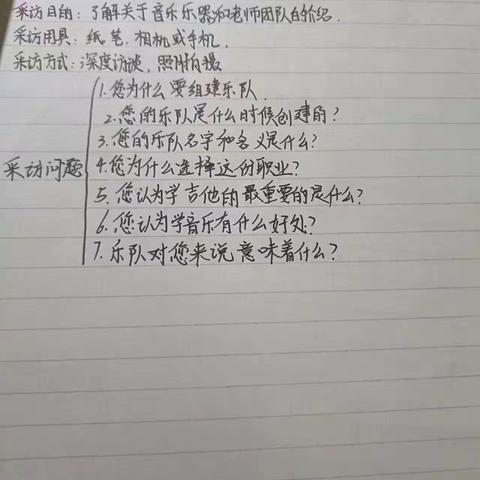 采访目的：了解关于音乐乐器和老师团队的介绍.
采访用具：纸，笔，相机或手机，
采访方式：深度访谈，照片拍摄
采访问题
1.您为什么要组建乐队
2.您的乐队是什么时候创建的？
3.您的乐队名字和含义是什么？
4.您为什么选择这份职业？
5.您认为学吉他的最重要的是什么？
6.您认为学音乐有什么好处？
7.乐队对您来说意味着什么？